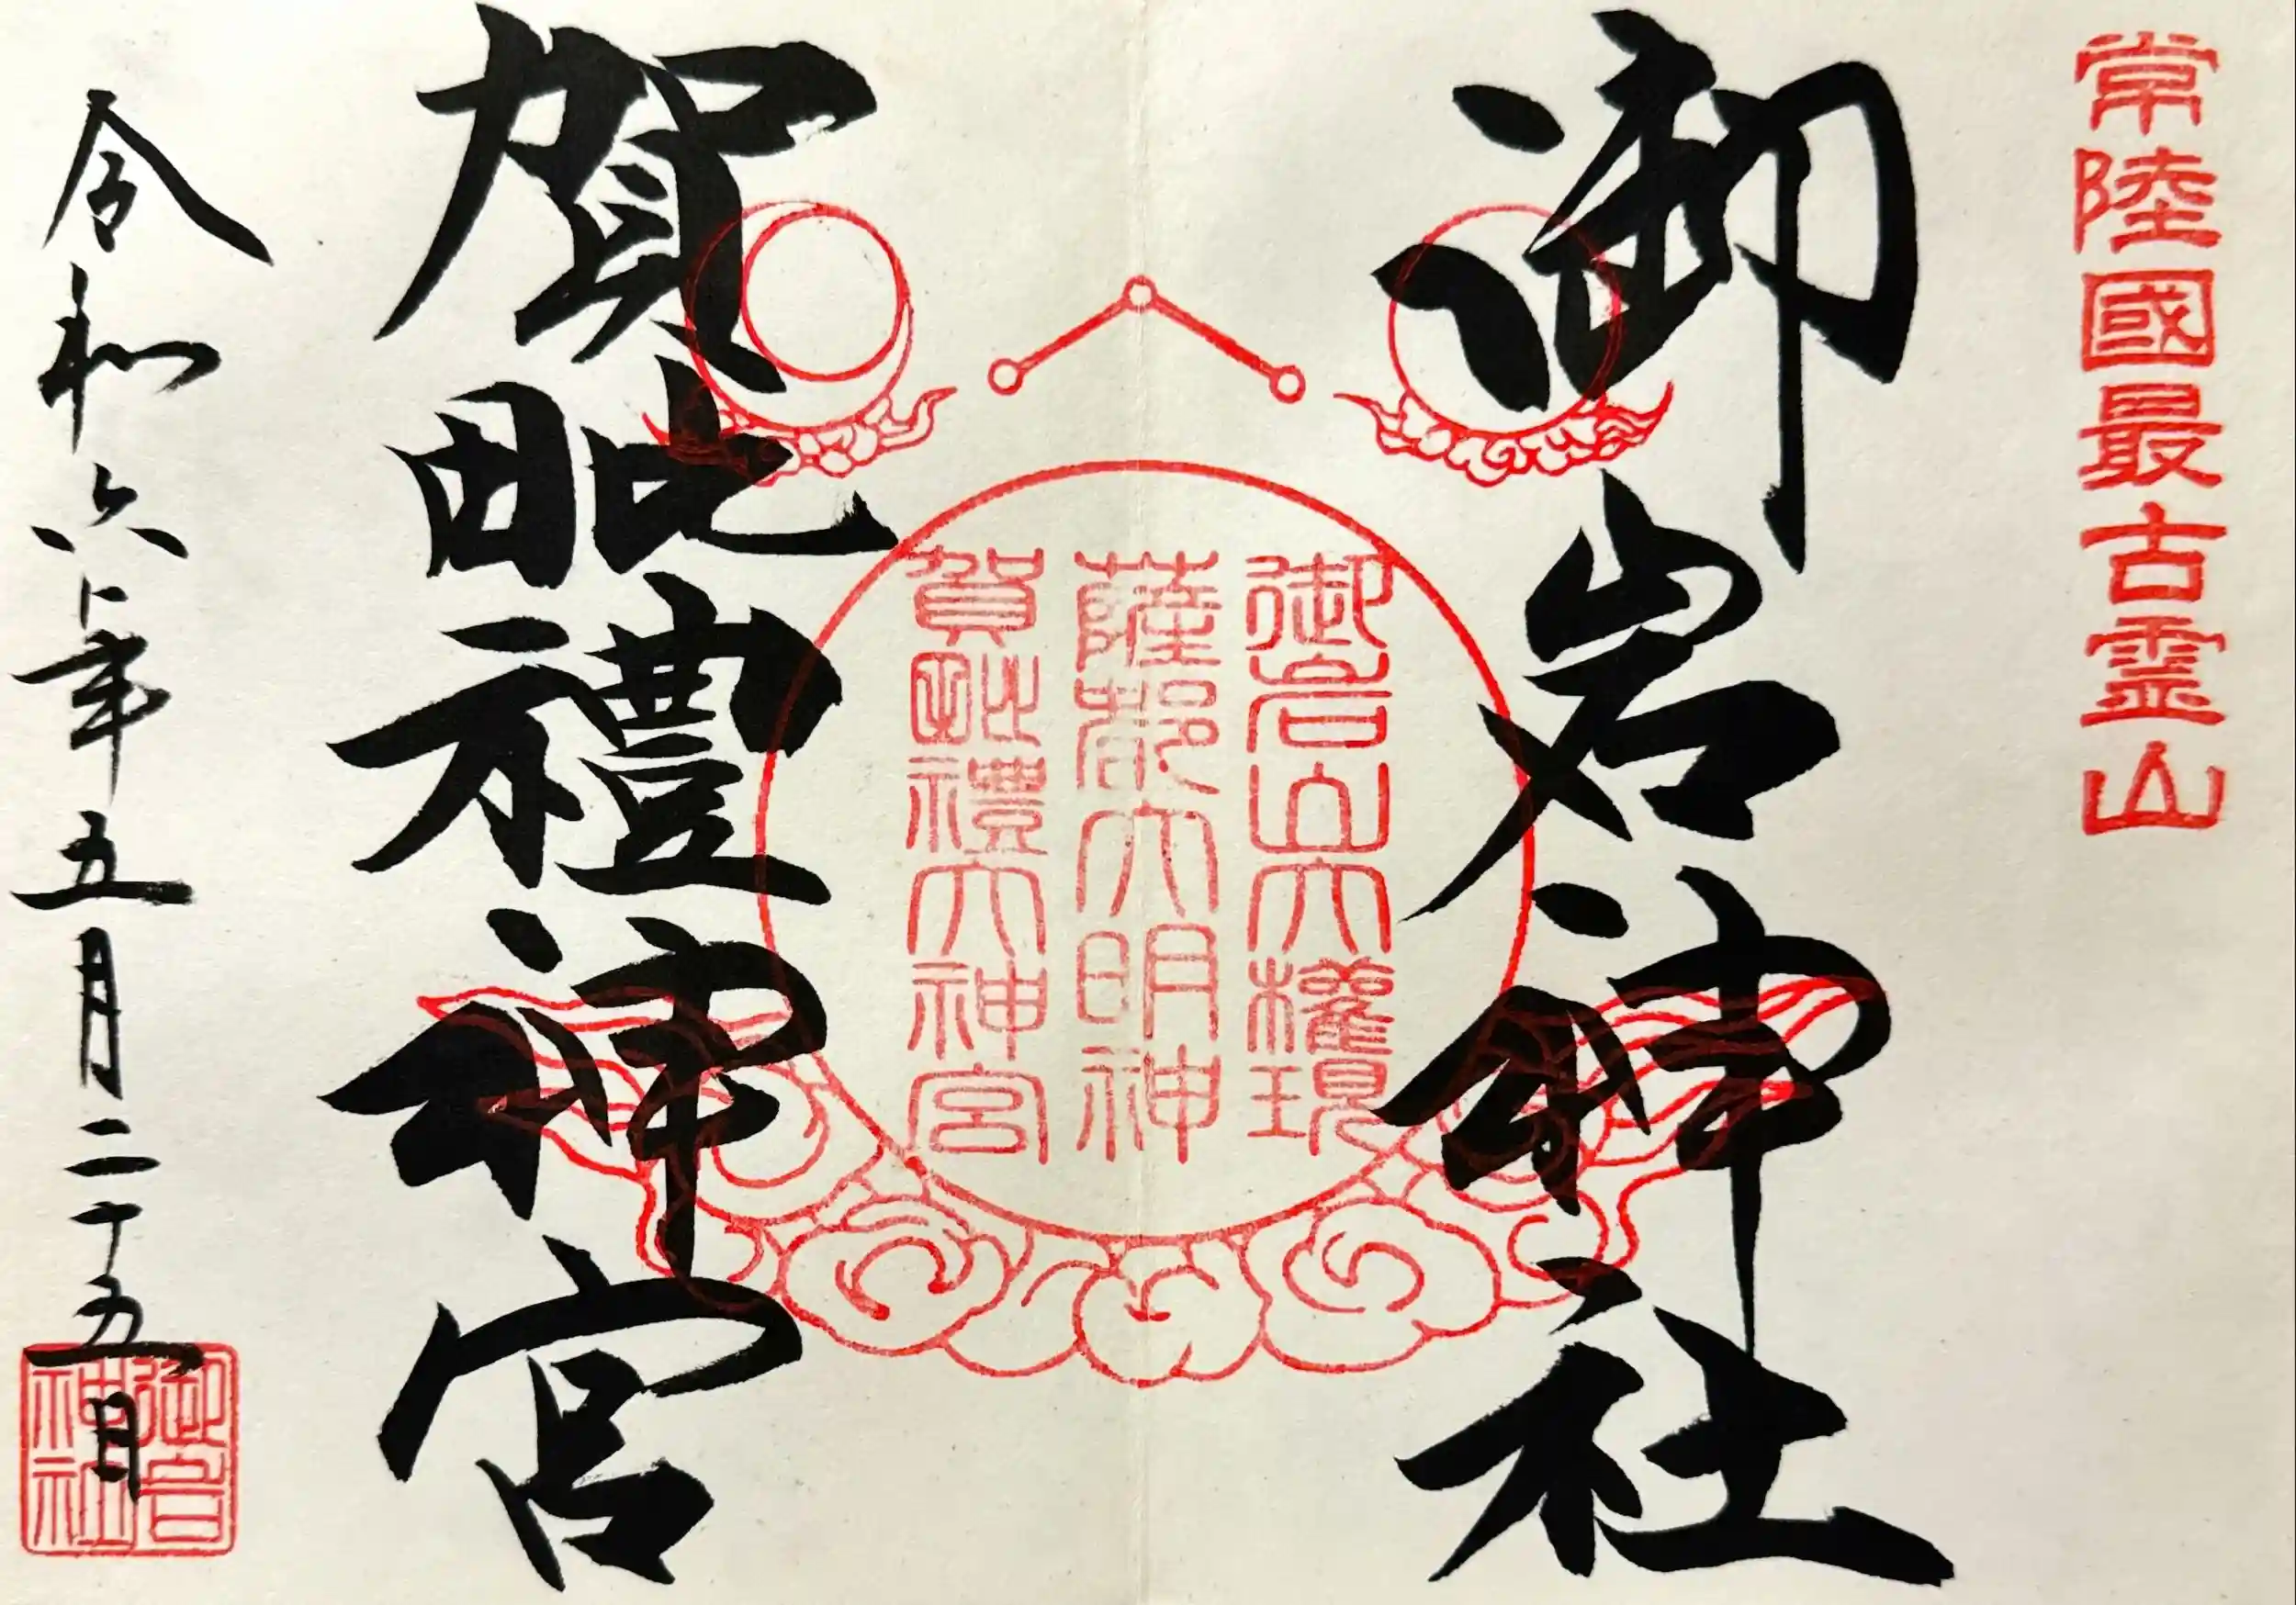 常陸國最古霊山
御岩神社
御岩山大権現
薩都大明神
賀毗禮大神宮
賀毗禮神宮
令和六年五月二十五日
御岩神社